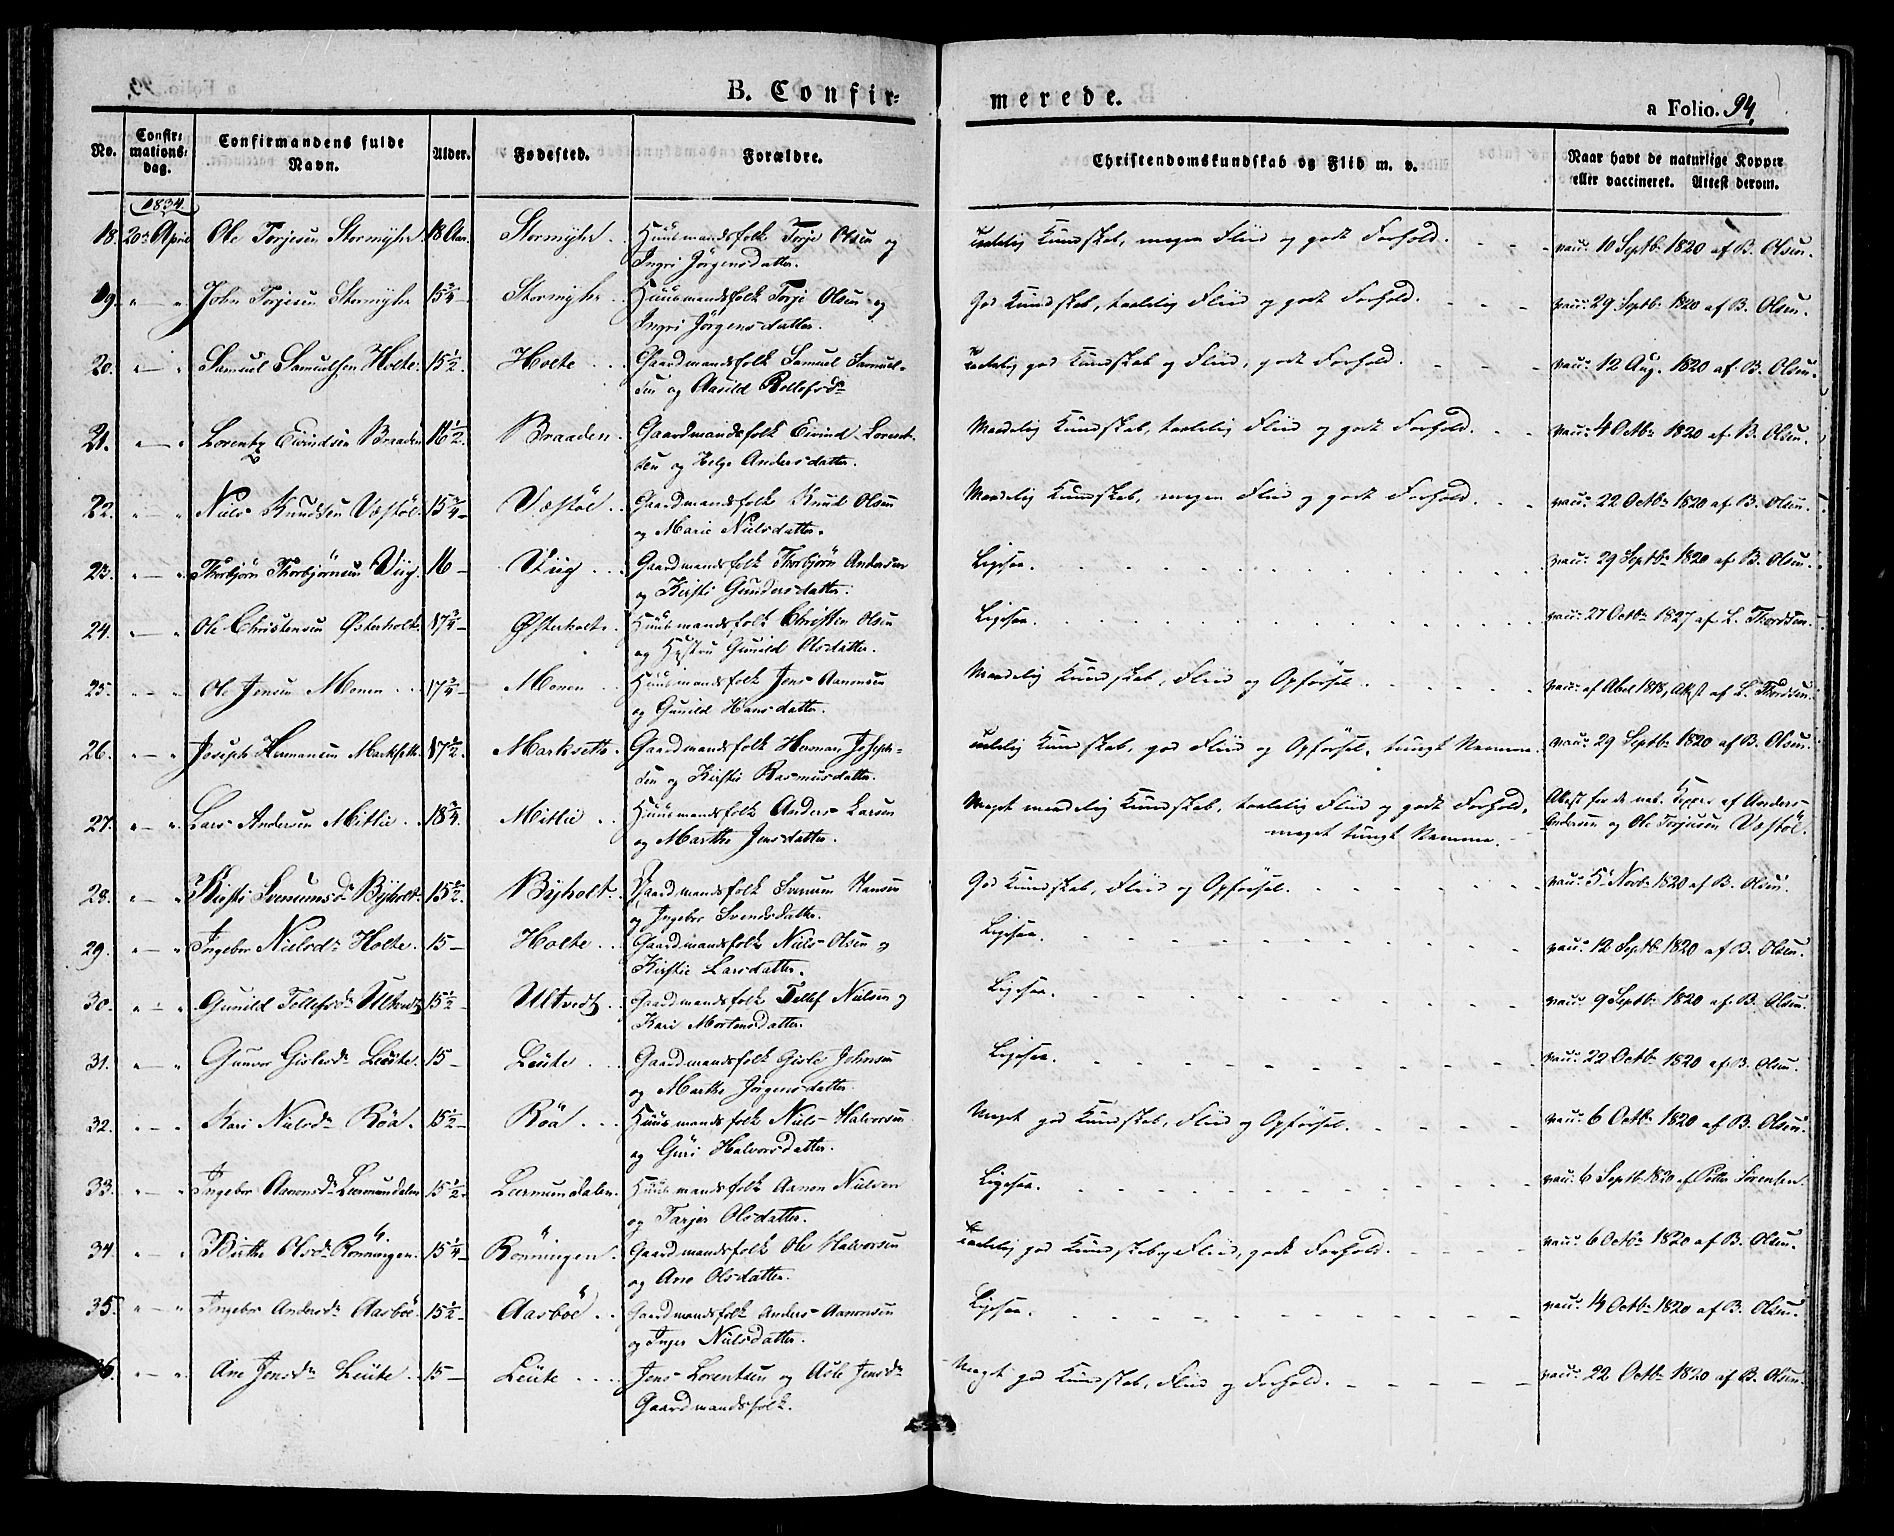 B. Confir=
merede.
a Folio. 94.
No.
Confir=
mations=
dag.
Confirmandens fulde
Navn.
Alder.
Fødested.
Forældre.
Christendomskundskab og Flid m. v.
Naar havt de naturlige Kopper
eller vaccineret. Attest derom.
1834
18. 20de April Ole Torjesen Stormyhr 18 Aar. Stormyhr. Huusmandsfolk Torje Olsen og
Ingri Jörgensdatter.
taalelig Kundskab, megen Fliid og godt Forhold. vacc. 10 Septbr 1820 af B. Olsen.
19. " — " John Torjesen Stormyhr 15 3/4 Stormyhr Huusmandsfolk Torje Olsen og
Ingri Jörgensdatter.
God Kundskab, taalelig Fliid og godt Forhold. vacc. 29 Septb. 1820 af B. Olsen.
20. " — " Samuel Samuelsen Holte. 15 1/2. Holte Gaardmandsfolk Samuel Samuel-
sen og Aasild Rollefsdr
taalelig god Kundskab og Fliid, godt Forhold. vacc. 12 Aug. 1820 af B. Olsen.
21. " — " Lorentz Eivindsen Braaden 16 1/2. Braaden. Gaardmandsfolk Eivind Lorent-
sen og Helge Andersdatter.
Maadelig Kundskab, taalelig Fliid og godt Forhold. vacc. 4 Octbr 1820 af B. Olsen.
22. " — " Niels Knudsen Vastöl. 15 3/4 Vastöl Gaardmandsfolk Knud Olsen
og Marie Nielsdatter.
Maadelig Kundskab, megen Fliid og godt Forhold. vacc. 22 Octbr 1820 af B. Olsen.
23. " — " Thorbjörn Thorbjörnsen Viig. 16 — Viig Gaardmandsfolk Thorbjörn Andersen
og Kirsti Gundersdatter.
Ligesaa. vacc. 29 Septbr 1820 af B. Olsen.
24. " — " Ole Christensen Østerholt. 17 3/4 — Østerholt. Huusmandsfolk Christen Olsen
og Hustru Gunild Olsdatter.
Ligesaa. vacc. 27 Octbr 1827 af L. Thordsen.
25. " — " Ole Jensen Monen 17 3/4 — Monen Huusmandsfolk Jens Aanonsen
og Gunild Hansdatter.
Maadelig Kundskab, Fliid og Opförsel. vacc. af Abel 1818, Attest af L. Thordsen.
26. " — " Joseph Hermansen Marksett. 17 1/2. Marksett. Gaardmandsfolk Herman Joseph-
sen og Kirstie Rasmusdatter.
taalelig Kundskab, god Fliid og Opförsel, tungt Nemme. vacc. 29 Septbr 1820 af B. Olsen.
27. " — " Lars Andersen Mittie 18 3/4. Mittie Huusmandsfolk Anders Larsen
og Marthe Jensdatter.
Meget maadelig Kundskab, taalelig Fliid og godt Forhold,
meget tungt Nemme.
Attest for de nat. Kopper af Anders
Andersen og Ole Torjusen Vastöl.
28. " — " Kirsti Svenumsdr Byholt. 15 1/2. Byholt. Gaardmandsfolk Svenum Hansen
og Ingebor Svendsdatter.
God Kundskab, Fliid og Opförsel. vacc. 5 Novbr 1820 af B. Olsen.
29. " — " Ingebor Nielsdr Holte. 15 — Holte Gaardmandsfolk Niels Olsen og
Kirstie Larsdatter.
Ligesaa. vacc. 12 Septb. 1820 af B. Olsen.
30. " — " Gunild Tellefsdr Ultvedt 15 1/2 — Ultvedt Gaardmandsfolk Tellef Nielsen og
Kari Mortensdatter.
Ligesaa. vacc. 9 Septbr 1820 af B. Olsen.
31. " — " Gunvor Gislesdr Leüte. 15 — Leüte Gaardmandsfolk Gisle Johnsen
og Marthe Jörgensdatter.
Ligesaa. vacc. 22 Octbr 1820 af B. Olsen.
32. " — " Kari Nielsdr Röa. 15 1/2 — Röa Huusmandsfolk Niels Halvorsen
og Guri Halvorsdatter.
Meget god Kundskab, Fliid og Opförsel. vacc. 6 Octbr 1820 af B. Olsen.
33. " — " Ingebor Aanonsdr Leermundalen 15 1/2. Leermundalen. Huusmandsfolk Aanon Nielsen
og Tarjer Olsdatter.
Ligesaa. vacc. 6 Septb. 1820 af Peter Sörensen.
34. " — " Birthe Olsdr Rönningen. 15 1/4 — Rönningen. Gaardmandsfolk Ole Halvorsen
og Ane Olsdatter.
taalelig god Kundskab og Fliid, godt Forhold. vacc. 6 Octbr 1820 af B. Olsen.
35. " — " Ingebor Andersdr Aasböe. 15 1/2 — Aasböe Gaardmandsfolk Anders Aanonsen
og Inger Nielsdatter.
Ligesaa. vacc. 14 Octbr 1820 af B. Olsen.
36. " — " Ane Jensdr Leüte. 15 — Leüte Jens Lorentsen og Asle Jensdr
Gaardmandsfolk.
Meget god Kundskab, Fliid og Forhold. vacc. 22 Octbr 1820 af B. Olsen.